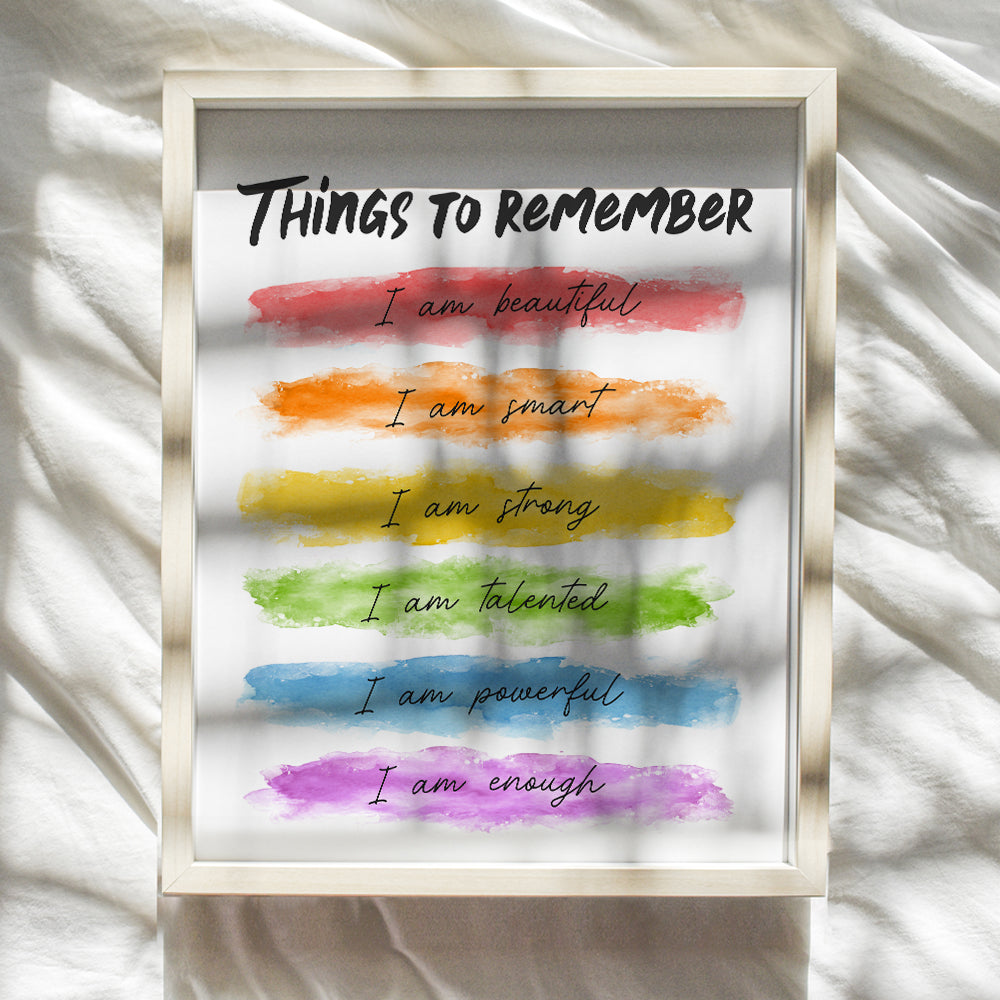 Things to remember
I am beautiful
I am smart
I am strong
I am talented
I am powerful
I am enough